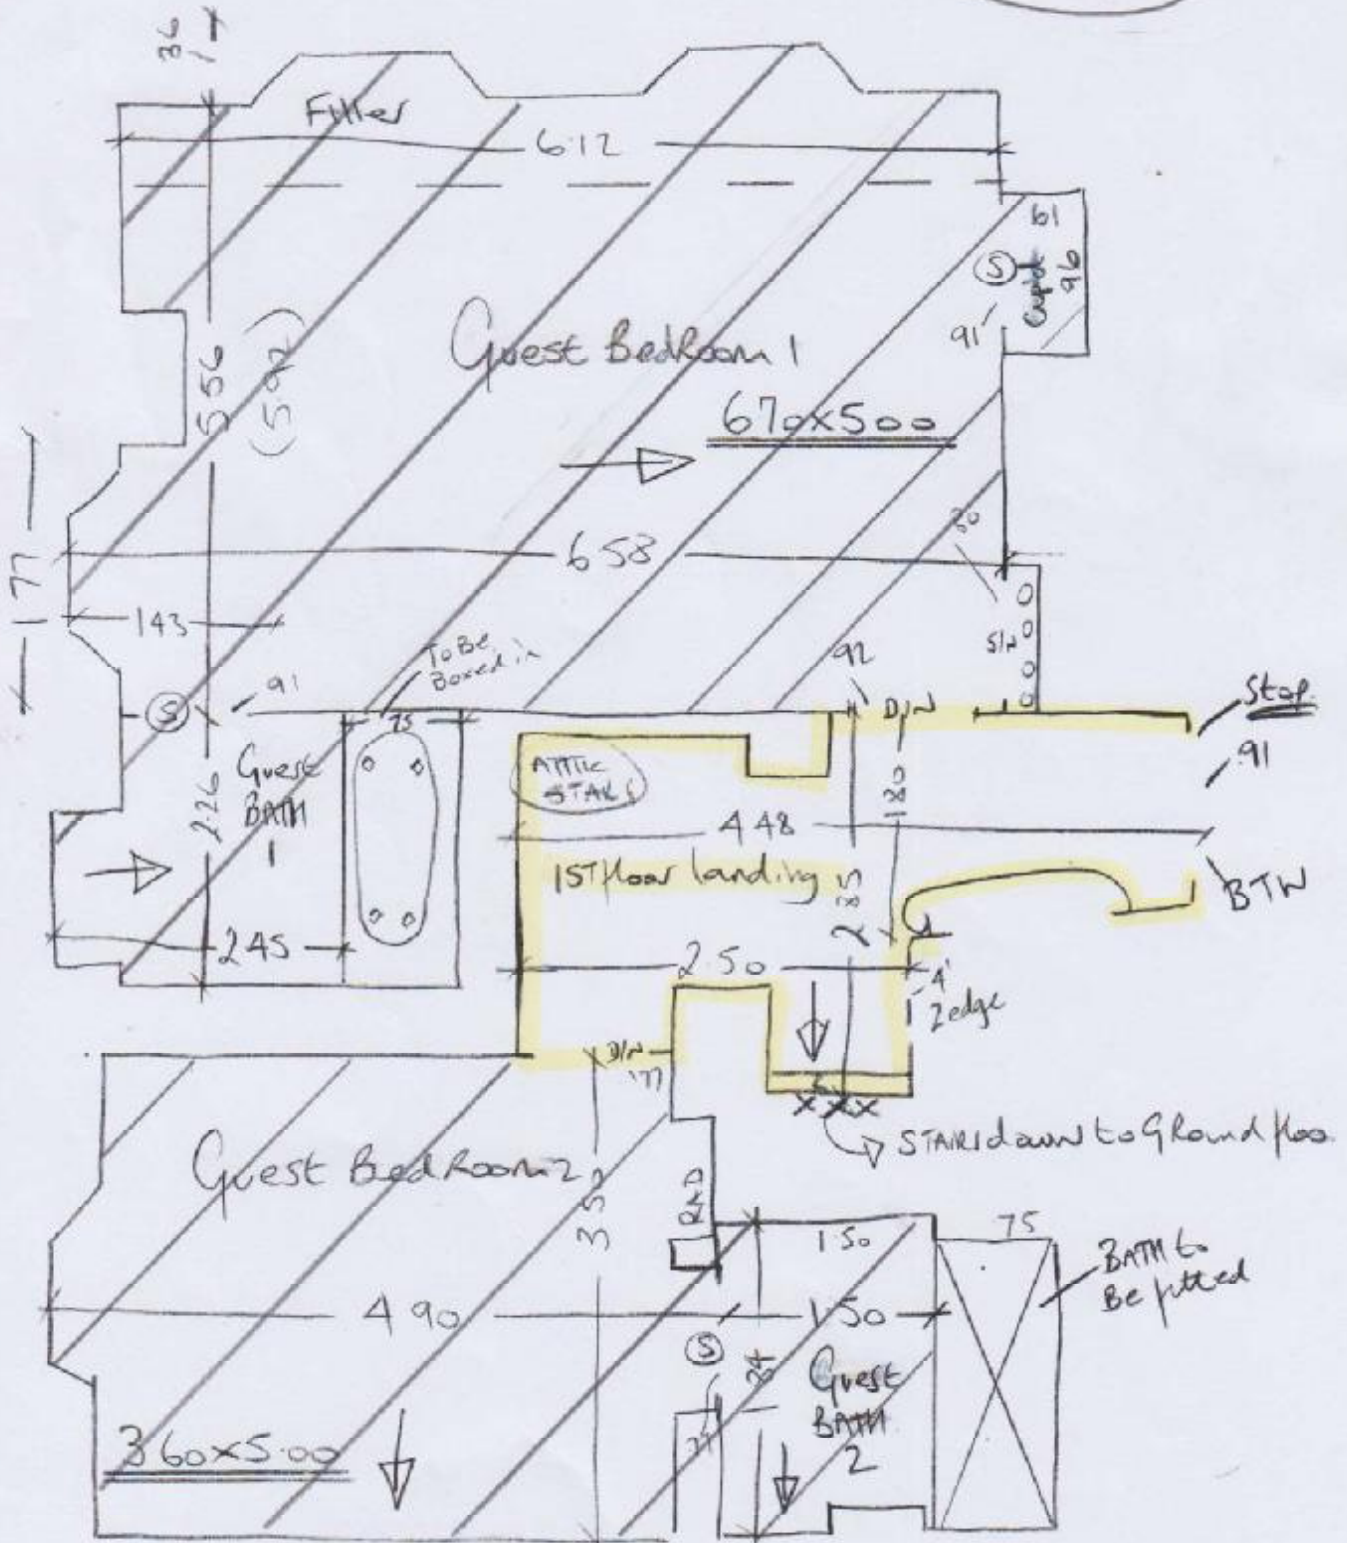 36
Filler
6.12
61
S
Cupbd
96
91
556
(592)
Guest BedRoom 1
670x500
30
177
658
143
To Be
Boxed in
92
S/N
S
91
75
D/N
Stop.
91
ATTIC
STAIRS
Guest
BATH
1
226
180
448
1ST floor landing
285
BTW
245
2.50
4'
2 edge
D/N
77
XXX
STAIRS down to GRound floo
Guest BedRoom 2
352
RAD
150
75
BATH to
Be fitted
490
1.50
S
84
Guest
BATH
2
77
360x5.00